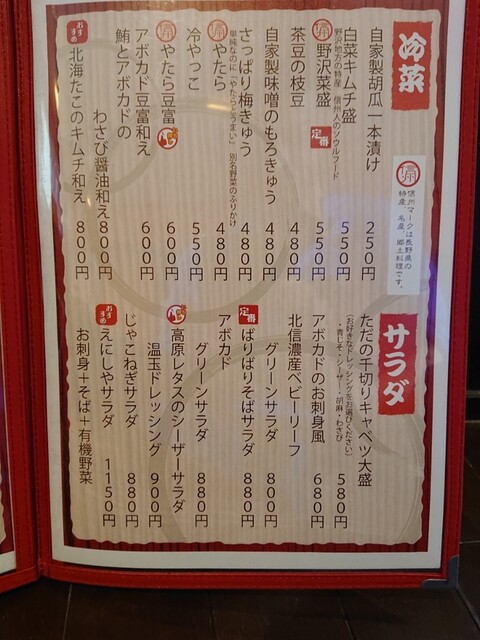 冷菜
信州
信州マークは長野県の
特産、名産、郷土料理です。
自家製胡瓜一本漬け 250円
白菜キムチ盛 550円
信州 野沢菜盛 定番 550円
野沢地方の特産 信州人のソウルフード
茶豆の枝豆 480円
自家製味噌のもろきゅう 480円
さっぱり梅きゅう 480円
信州 やたら 480円
単純なのに「やたらとうまい」 別名野菜のふりかけ
冷やっこ 550円
信州 やたら豆富 600円
アボカド豆富和え 600円
鮪とアボカドの
わさび醤油和え 800円
おすすめ 北海たこのキムチ和え 800円
サラダ
ただの千切りキャベツ大盛 580円
(お好きなドレッシングをお選びください)
・青じそ・シーザー・胡麻・わさび
アボカドのお刺身風 680円
北信濃産ベビーリーフ
グリーンサラダ 800円
定番 ぱりぱりそばサラダ 880円
アボカド
グリーンサラダ 880円
高原レタスのシーザーサラダ
温玉ドレッシング 900円
じゃこねぎサラダ 880円
おすすめ えにしやサラダ 1150円
お刺身+そば+有機野菜